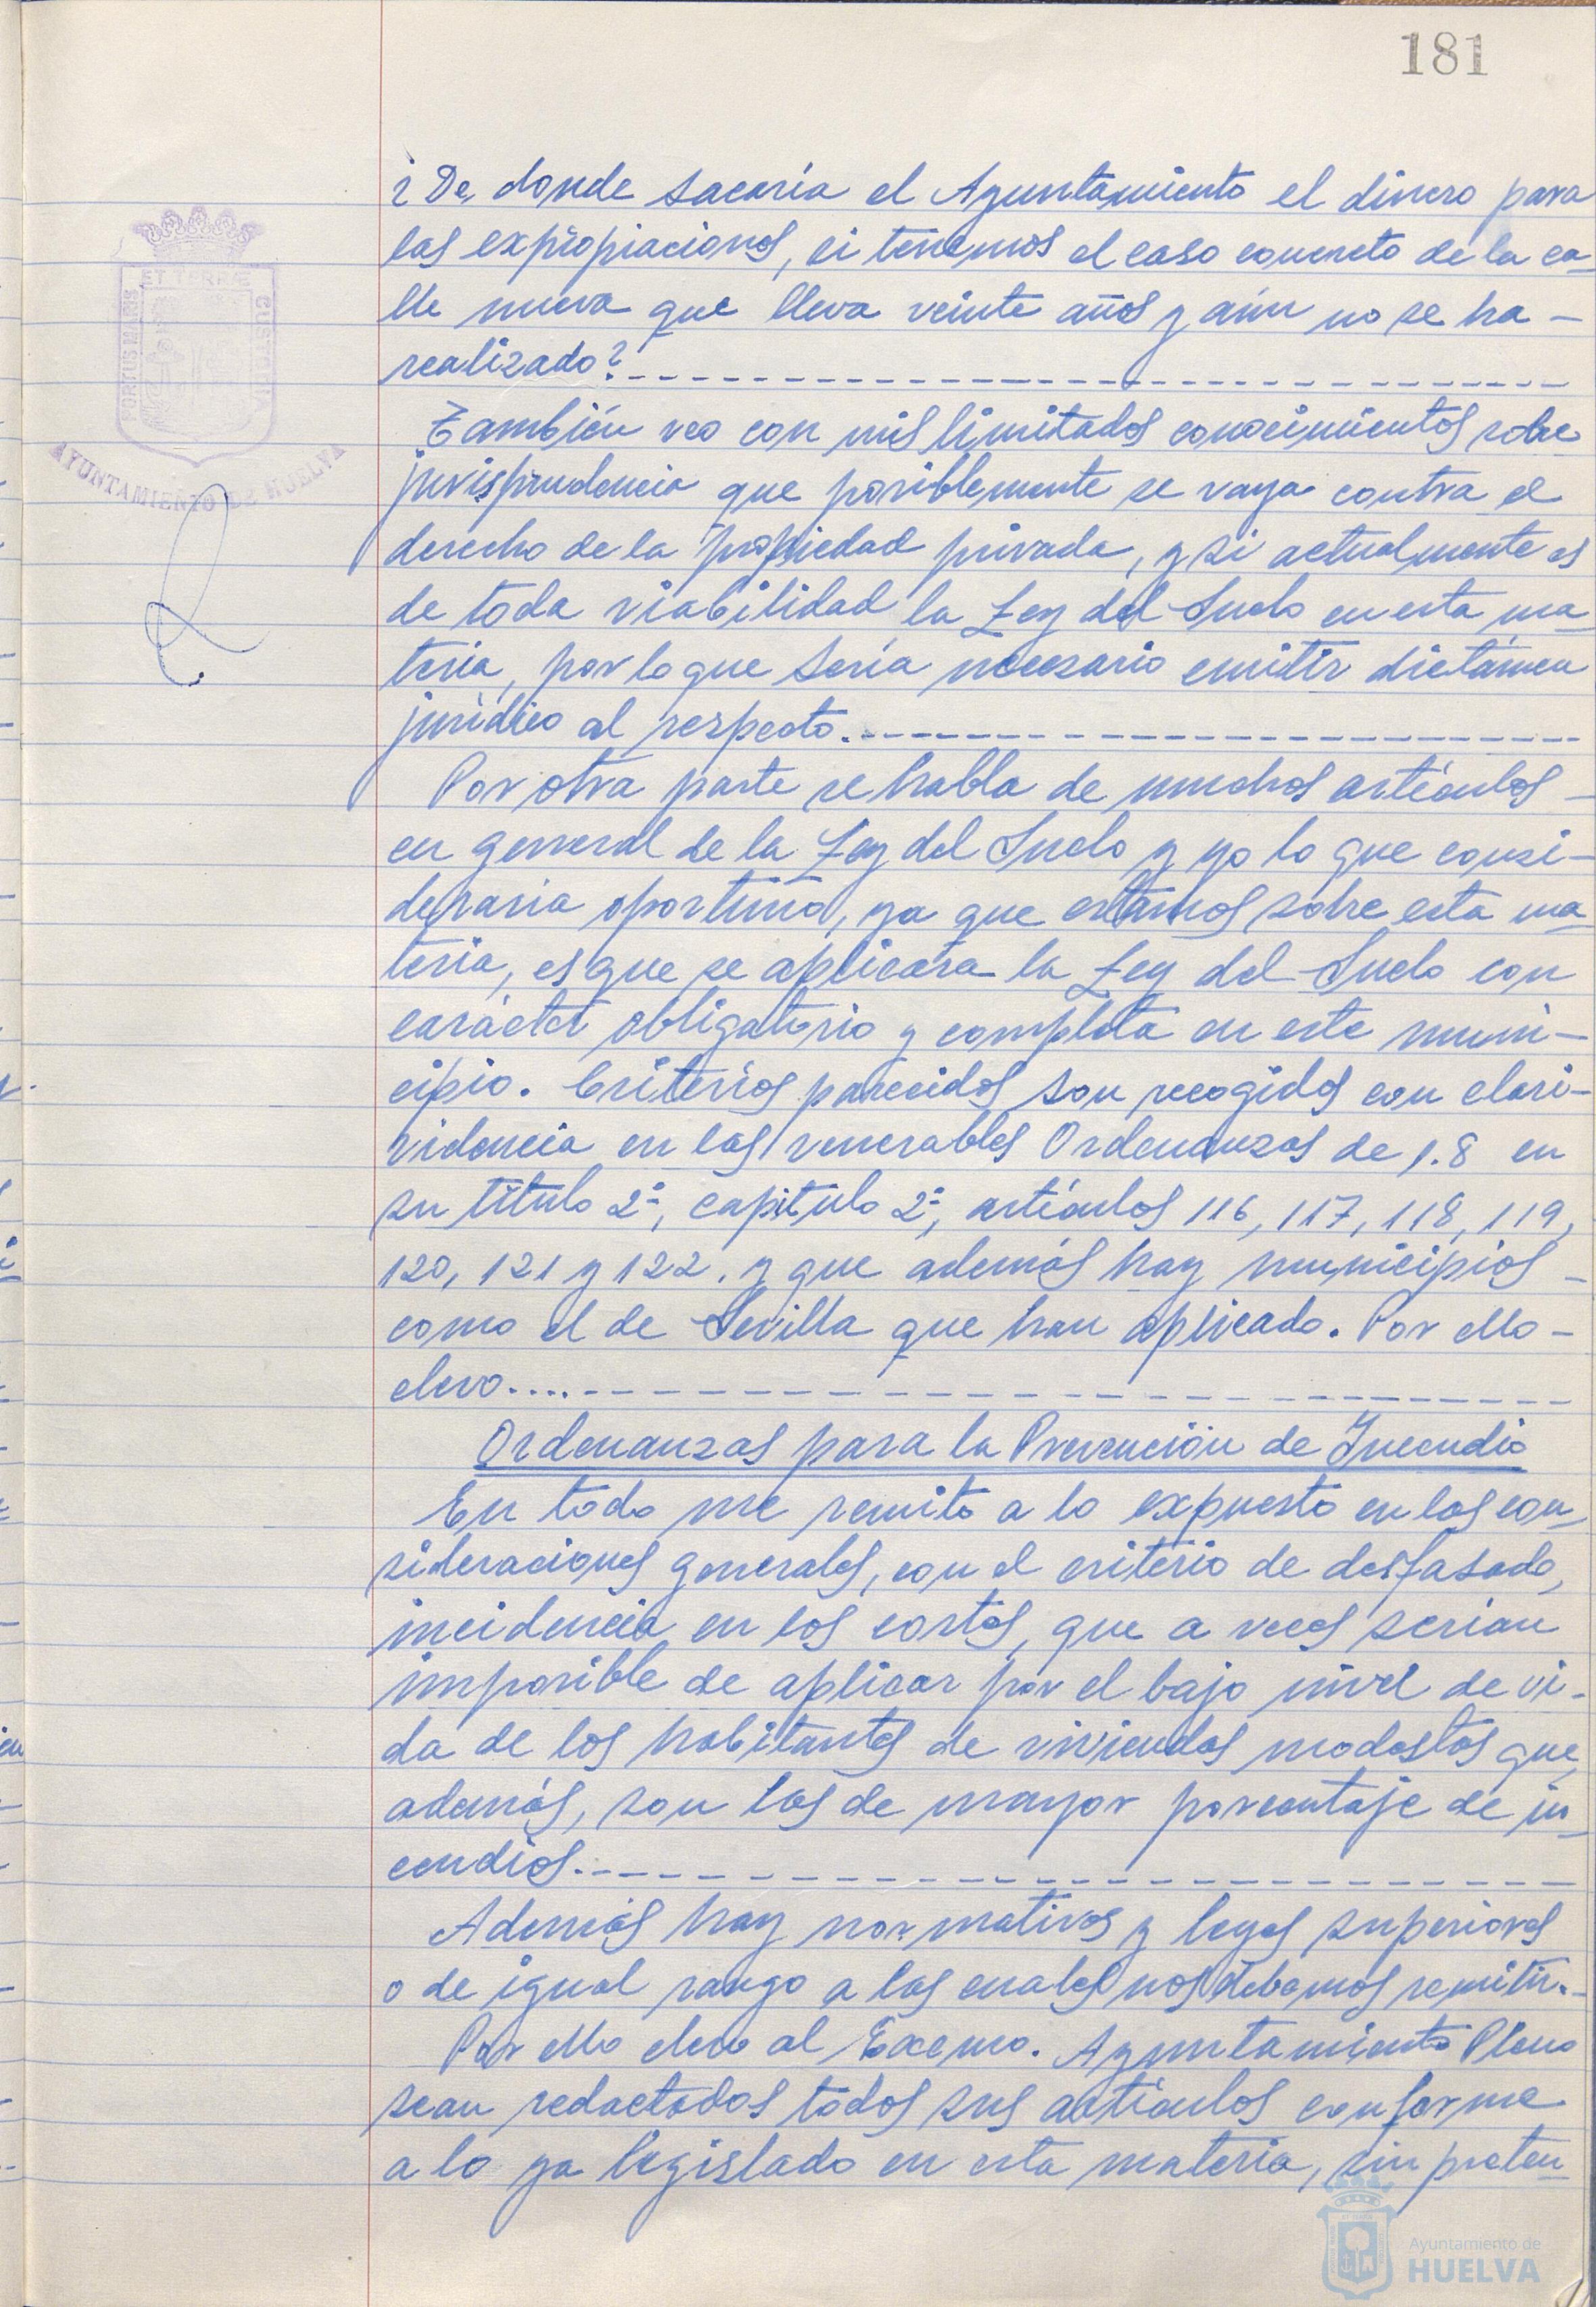 181
¿De donde sacaría el Ayuntamiento el dinero para
las expropiaciones, si tenemos el caso concreto de la ca-
lle nueva que lleva veinte años y aún no se ha -
realizado?
También veo con mis limitados conocimientos sobre
jurisprudencia que posiblemente se vaya contra el
derecho de la propiedad privada, y si actualmente es
de toda viabilidad la Ley del Suelo en esta ma-
teria, por lo que sería necesario emitir dictámen
jurídico al respecto.
Por otra parte se habla de muchos artículos -
en general de la Ley del Suelo y yo lo que consi-
deraria oportuno, ya que estamos sobre esta ma-
teria, es que se aplicara la Ley del Suelo con
carácter obligatorio y completa en este muni-
cipio. Criterios parecidos son recogidos con clari-
videncia en las venerables Ordenanzas de 1.8 en
su título 2º, capitulo 2º, artículos 116, 117, 118, 119,
120, 121 y 122. y que además hay municipios -
como el de Sevilla que han aplicado. Por ello -
elevo....
Ordenanzas para la Prevención de Incendio
En todo me remito a lo expuesto en las con-
sideraciones generales, con el criterio de desfasado,
incidencia en los costes, que a veces serian
imposible de aplicar por el bajo nivel de vi-
da de los habitantes de viviendas modestas que,
además, son las de mayor porcentaje de in-
cendios.
Además hay normativas y leyes superiores
o de igual rango a las cuales nos debemos remitir.-
Por ello elevo al Excmo. Ayuntamiento Pleno
sean redactados todos sus artículos conforme
a lo ya legislado en esta materia, sin preten-
PORTUS MARIS
ET TERRE
CUSTODIA
AYUNTAMIENTO DE HUELVA
Ayuntamiento de
HUELVA